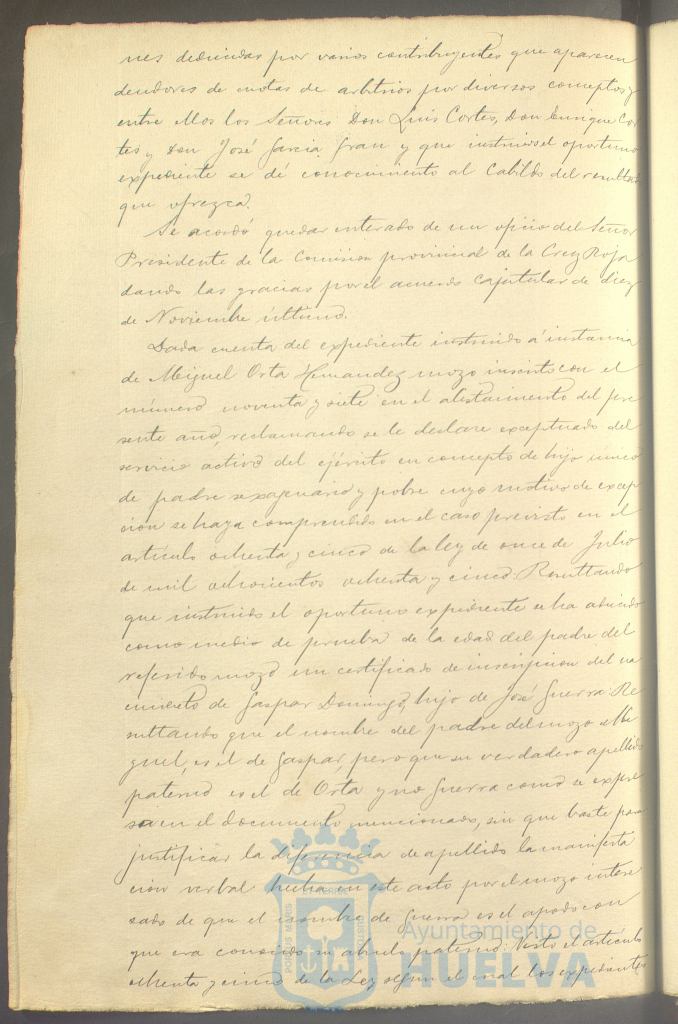 nes deducidas por varios contribuyentes que aparecen
deudores de cuotas de arbitrios por diversos conceptos y
entre ellos los Señores Don Luis Cortes, Don Enrique Cor
tes y Don José Garcia Grau y que instruido el oportuno
expediente se dé conocimiento al Cabildo del resultado
que ofrezca.
Se acordó quedar enterado de un oficio del Señor
Presidente de la Comision provincial de la Cruz Roja
dando las gracias por el acuerdo capitular de diez
de Noviembre último.
Dada cuenta del expediente instruido á instancia
de Miguel Orta Hernandez mozo inscrito con el
número noventa y siete en el alistamiento del pre
sente año, reclamando se le declare exceptuado del
servicio activo del ejército en concepto de hijo único
de padre sexagenario y pobre cuyo motivo de excep
cion se haya comprendido en el caso previsto en el
artículo ochenta y cinco de la ley de once de Julio
de mil ochocientos ochenta y cinco: Resultando
que instruido el oportuno expediente se ha aducido
como medio de prueba de la edad del padre del
referido mozo un certificado de inscripcion del na
cimiento de Gaspar Domingo, hijo de José Guerra: Re
sultando que el nombre del padre del mozo Mi
guel, es el de Gaspar, pero que su verdadero apellido
paterno es el de Orta y no Guerra como se expre
sa en el documento mencionado, sin que baste para
justificar la diferencia de apellido la manifesta
cion verbal hecha en este acto por el mozo intere
sado de que el nombre de Guerra es el apodo con
que era conocido su abuelo paterno: Visto el artículo
ochenta y cinco de la Ley segun el cual los expedientes
PORTUS MARIS
Ayuntamiento de
HUELVA